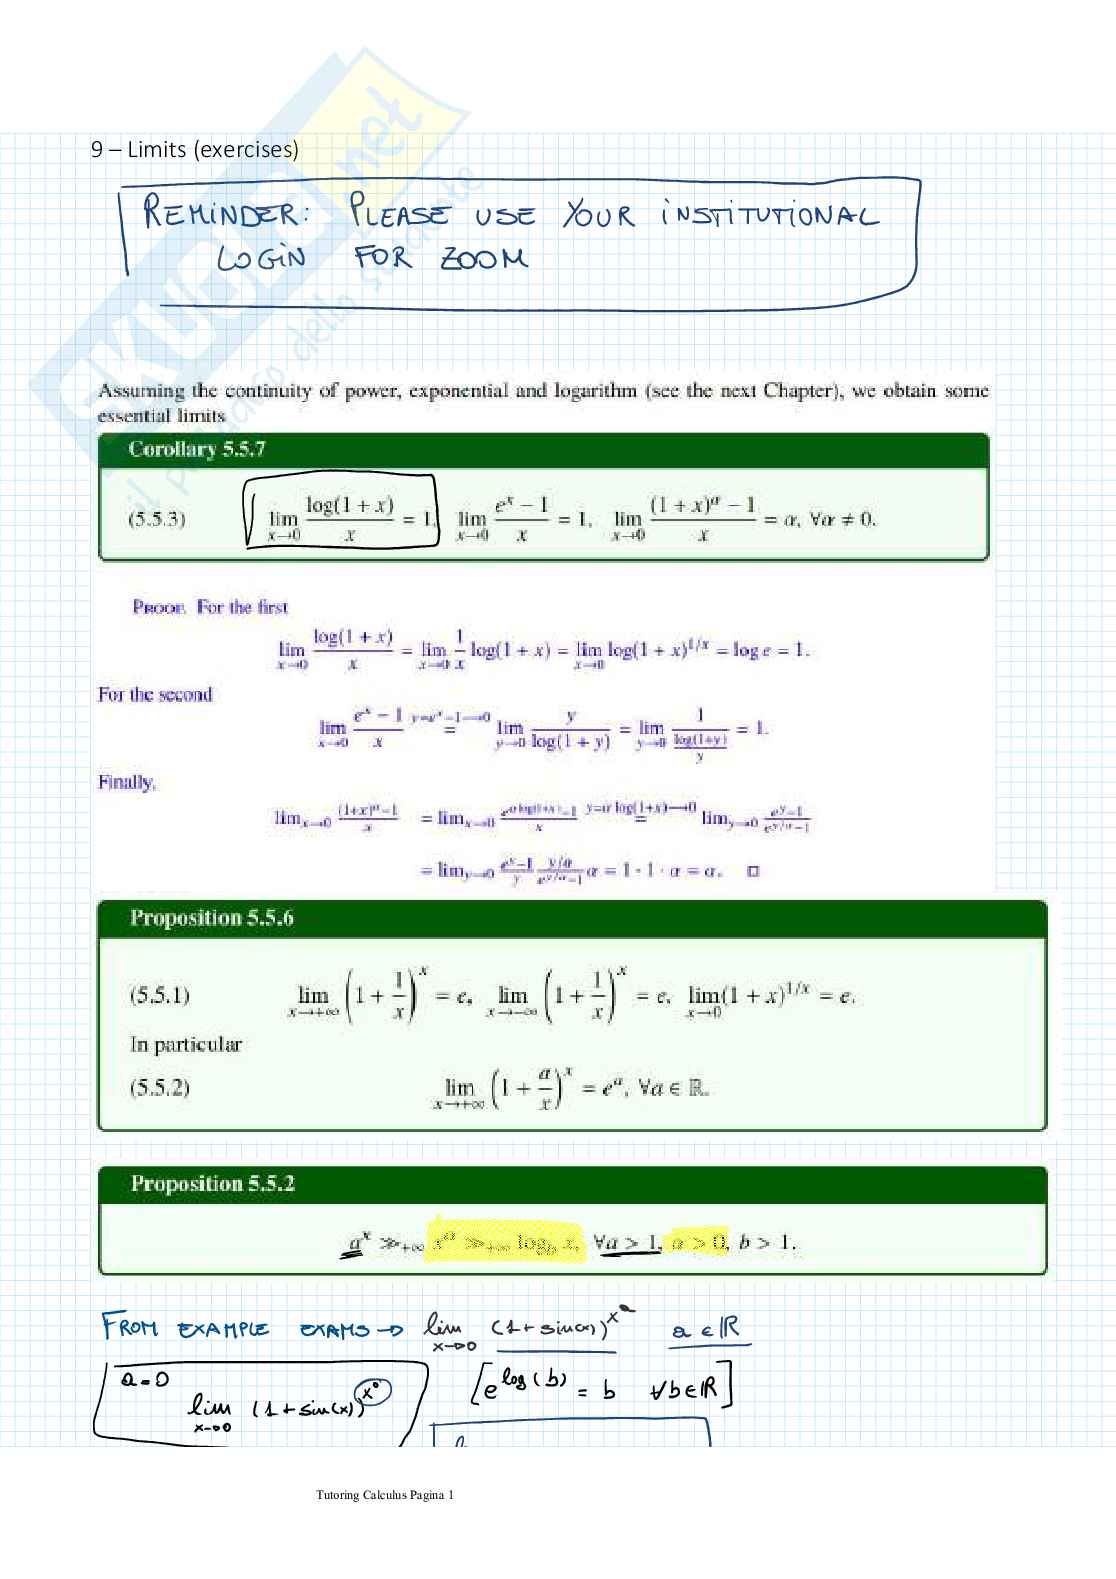 9 – Limits (exercises)
REMINDER: PLEASE USE YOUR INSTITUTIONAL
LOGIN FOR ZOOM
SKUOLA.net
il paradiso dello studente
Assuming the continuity of power, exponential and logarithm (see the next Chapter), we obtain some
essential limits
Corollary 5.5.7
(5.5.3) lim_{x→0} log(1 + x)/x = 1, lim_{x→0} (e^x − 1)/x = 1, lim_{x→0} ((1 + x)^α − 1)/x = α, ∀α ≠ 0.
PROOF. For the first
lim_{x→0} log(1 + x)/x = lim_{x→0} 1/x log(1 + x) = lim_{x→0} log(1 + x)^{1/x} = log e = 1.
For the second
lim_{x→0} (e^x − 1)/x =^{y=e^x−1→0} lim_{y→0} y/log(1 + y) = lim_{y→0} 1/(log(1+y)/y) = 1.
Finally,
lim_{x→0} ((1+x)^α−1)/x = lim_{x→0} (e^{α log(1+x)}−1)/x =^{y=α log(1+x)→0} lim_{y→0} (e^y−1)/(e^{y/α}−1)
= lim_{y→0} (e^y−1)/y (y/α)/(e^{y/α}−1) α = 1 · 1 · α = α. □
Proposition 5.5.6
(5.5.1) lim_{x→+∞} (1 + 1/x)^x = e, lim_{x→−∞} (1 + 1/x)^x = e, lim_{x→0} (1 + x)^{1/x} = e.
In particular
(5.5.2) lim_{x→+∞} (1 + a/x)^x = e^a, ∀a ∈ ℝ.
Proposition 5.5.2
a^x ≫_{+∞} x^α ≫_{+∞} log_b x, ∀a > 1, α > 0, b > 1.
FROM EXAMPLE EXAMS → lim_{x→0} (1 + sin(x))^{x^a} a ∈ ℝ
a = 0
[e^{log(b)} = b ∀b∈ℝ]
lim_{x→0} (1 + sin(x))^{x^0}
Tutoring Calculus Pagina 1